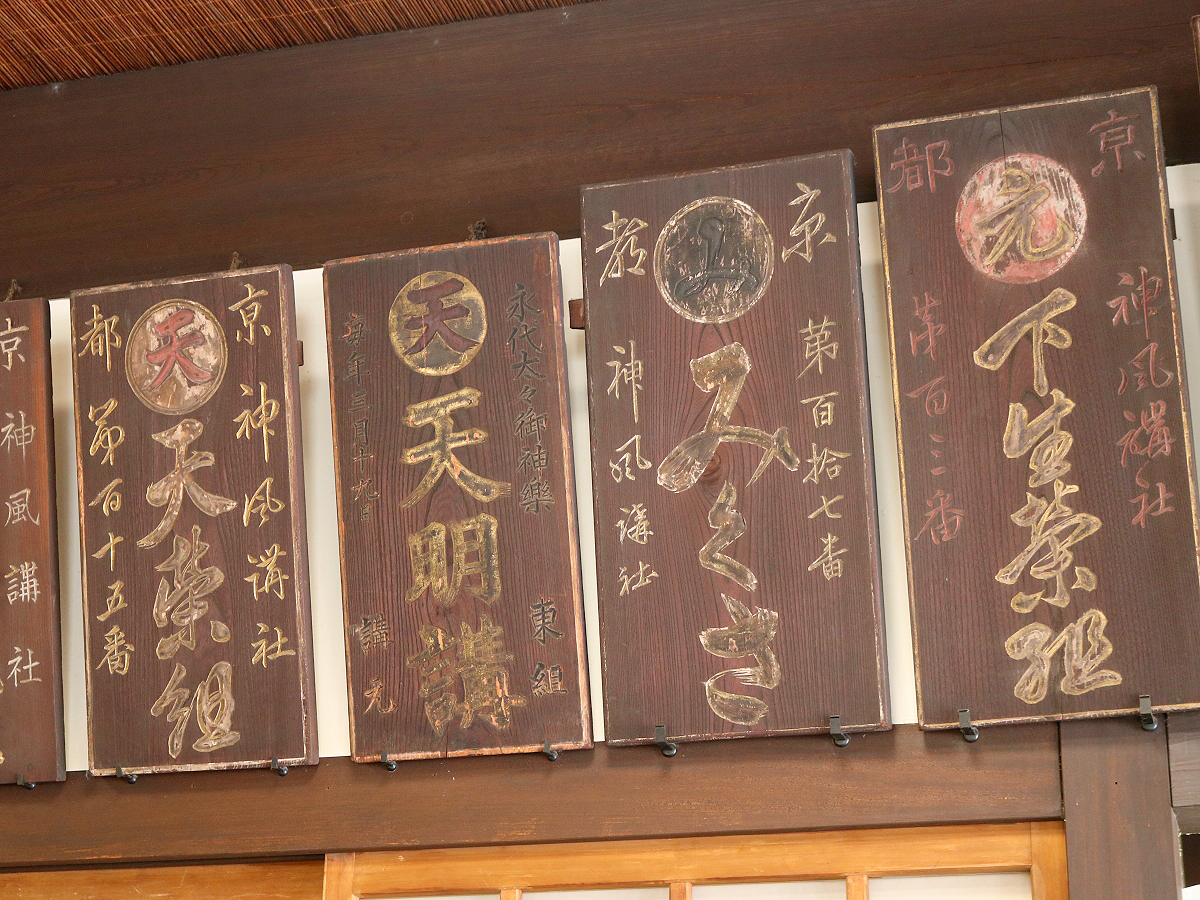 京都
元
神風講社
下生栄組
第百三番
京都
第百拾七番
みくさ
神風講社
永代太々御神樂
東組
天
天明講
毎年三月十九日
講元
京都
神風講社
天
天栄組
第百十五番
京
神風講社